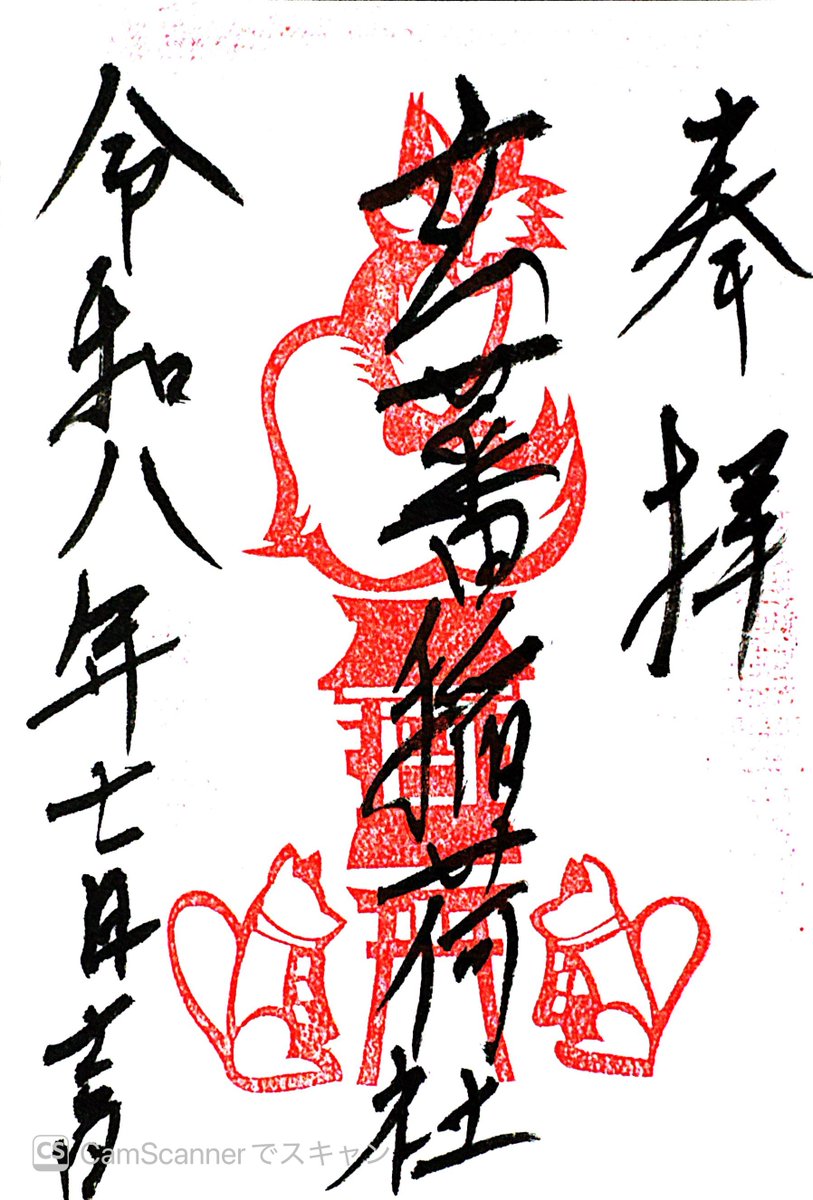 奉拝
玄蕃稲荷社
令和八年七月
CS CamScannerでスキャン